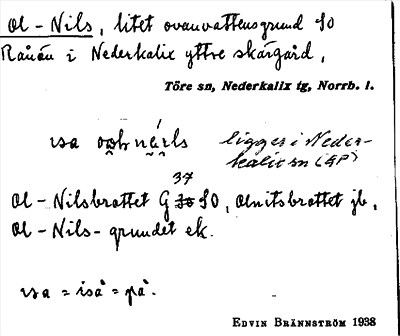 Ol-Nils, litet ovanvattensgrund SO
Rånön i Nederkalix yttre skärgård,
Töre sn, Nederkalix tg, Norrb. l.
ligger i Neder-
kalix sn (GP)
37
Ol-Nilsbrottet G 38 SO, Olnilsbrottet jb,
Ol-Nils-grundet ek.
isa = iså = på.
EDVIN BRÄNNSTRÖM 1938